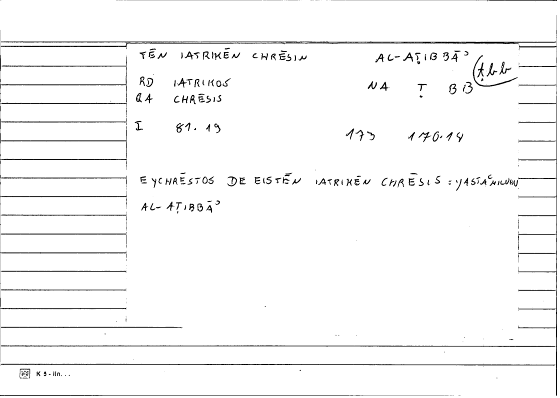 TĒN IATRIKĒN CHRĒSIN AL-AṬIBBĀʾ
ṭbb
RD IATRIKOS NA Ṭ BB
QA CHRĒSIS
I 81.19 173 170.14
EYCHRĒSTOS DE EIS TĒN IATRIKĒN CHRĒSIS : YASTAʿMILUHU
AL-AṬIBBĀʾ
K 5 - lin...